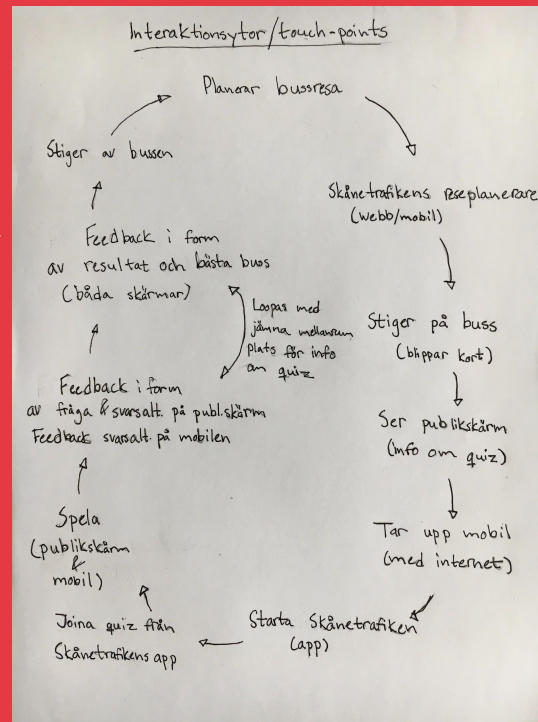 Interaktionsytor/touch-points
Planerar bussresa
Skånetrafikens reseplanerare
(webb/mobil)
Stiger på buss
(blippar kort)
Ser publikskärm
(info om quiz)
Tar upp mobil
(med internet)
Starta Skånetrafiken
(app)
Joina quiz från
Skånetrafikens app
Spela
(publikskärm
&
mobil)
Feedback i form
av fråga & svarsalt. på publ.skärm
Feedback svarsalt. på mobilen
Loopas med
jämna mellanrum,
plats för info
om quiz
Feedback i form
av resultat och bästa buss
(båda skärmar)
Stiger av bussen